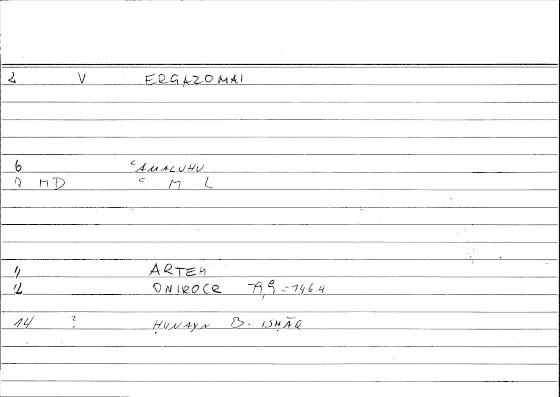 2 V ERGAZOMAI
6 ʿAMALUHU
7 MD ʿ M L
11 ARTEM
12 ONIROCR 79,9 = 146.4
14 ? ḤUNAYN B. ISḤĀQ